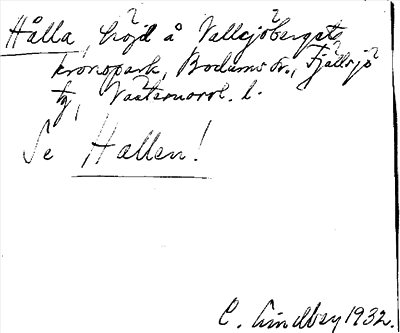 Hålla, höjd å Vallsjöbergets
kronopark, Bodums sn., Fjällsjö
tg, Västernorrl. l.
Se Hallen!
C. Lindbey 1932.